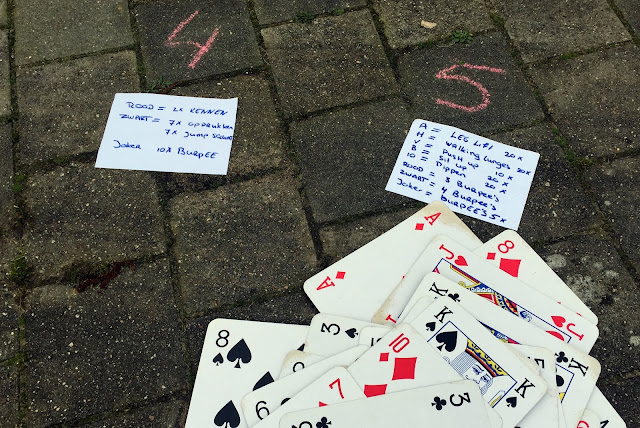 4
5
ROOD = 2x RENNEN
ZWART = 7x opdrukken
7x Jump SQUAT
Joker 10x BURPEE
A = LEG LIFT 20x
H = Walking Lunges 20x
V = Push up 10x
B = Sit up 20x
10 = Dippen 20x
ROOD = 3 Burpee's
ZWART = 4 Burpee's
Joker = BURPEES 5x
A
A
J
8
J
K
K
K
K
8
8
3
10
7
6
3